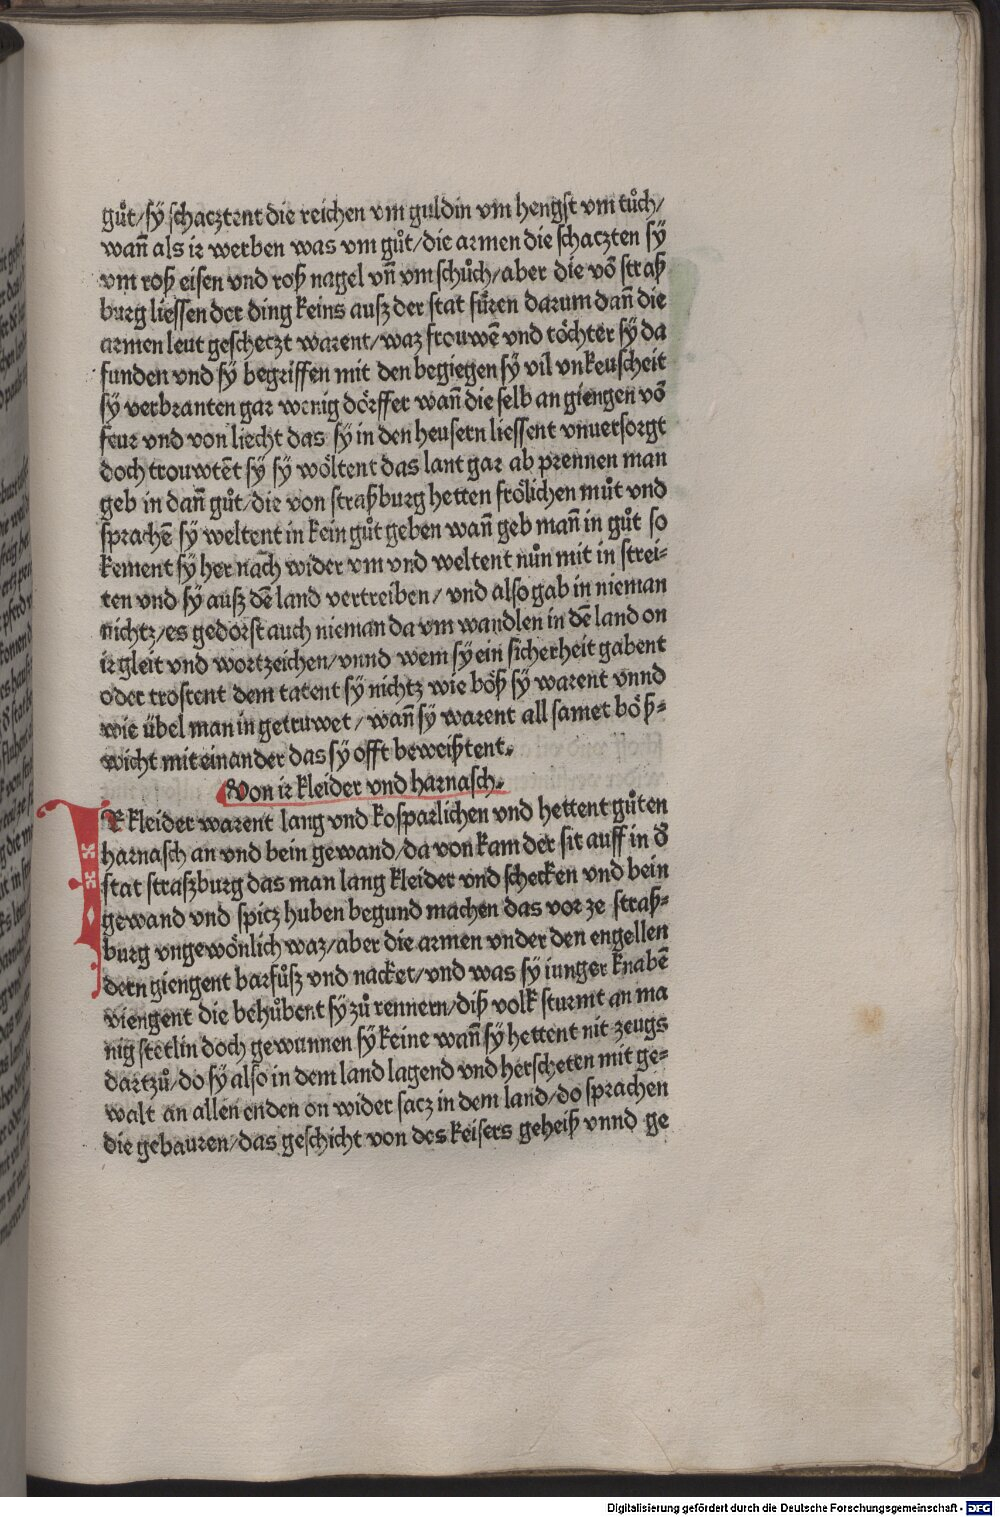 gůt/sÿ schacztent die reichen vm guldin vm hengst vm tůch/
wañ als ir werben was vm gůt/die armen die schaczten sÿ
vm roß eisen vnd roß nagel vñ vm schůch/aber die võ straß
burg liessen der ding keins ausz der stat fůren darum dañ die
armen leut geschetzt warent/waz frouwẽ vnd töchter sÿ da
funden vnd sÿ begriffen mit den begiegen sÿ vil vnkeuscheit
sÿ verbranten gar wenig dörffer wañ die selb an giengen võ
feur vnd von liecht das sÿ in den heusern liessent vnuersorgt
doch trouwtẽt sÿ sÿ wöltent das lant gar ab prennen man
geb in dañ gůt/die von straßburg hetten frölichen můt vnd
sprachẽ sÿ weltent in kein gůt geben wañ geb mañ in gůt so
kement sÿ her nach wider vm vnd weltent nůn mit in strei-
ten vnd sÿ ausz dẽ land vertreiben/ vnd also gab in nieman
nichtz/es gedorst auch nieman da vm wandlen in dẽ land on
ir gleit vnd wortzeichen/vnnd wem sÿ ein sicherheit gabent
oder trostent dem tatent sÿ nichtz wie böß sÿ warent vnnd
wie übel man in getruwet/wañ sÿ warent all samet böß-
wicht miteinander das sÿ offt beweißtent.
Von ir kleider vnd harnasch.
IR kleider warent lang vnd kosparlichen vnd hettent gůten
harnasch an vnd bein gewand/da von kam der sit auff in d̕
stat straszburg das man lang kleider vnd schecken vnd bein
gewand vnd spicz huben begund machen das vor ze straß-
burg vngewönlich waz/aber die armen vnder den engellen
dern giengent barfůsz vnd nacket/vnd was sÿ iunger knabẽ
viengent die behůbent sÿ zů rennern/diß volk sturmt an ma
nig stetlin doch gewunnen sÿ keine wañ sÿ hettent nit zeugs
dartzů/do sÿ also in dem land lagend vnd herscheten mit ge-
walt an allen enden on wider sacz in dem land/do sprachen
die gebauren/das geschicht von des keisers geheiß vnnd ge
Digitalisierung gefördert durch die Deutsche Forschungsgemeinschaft - DFG